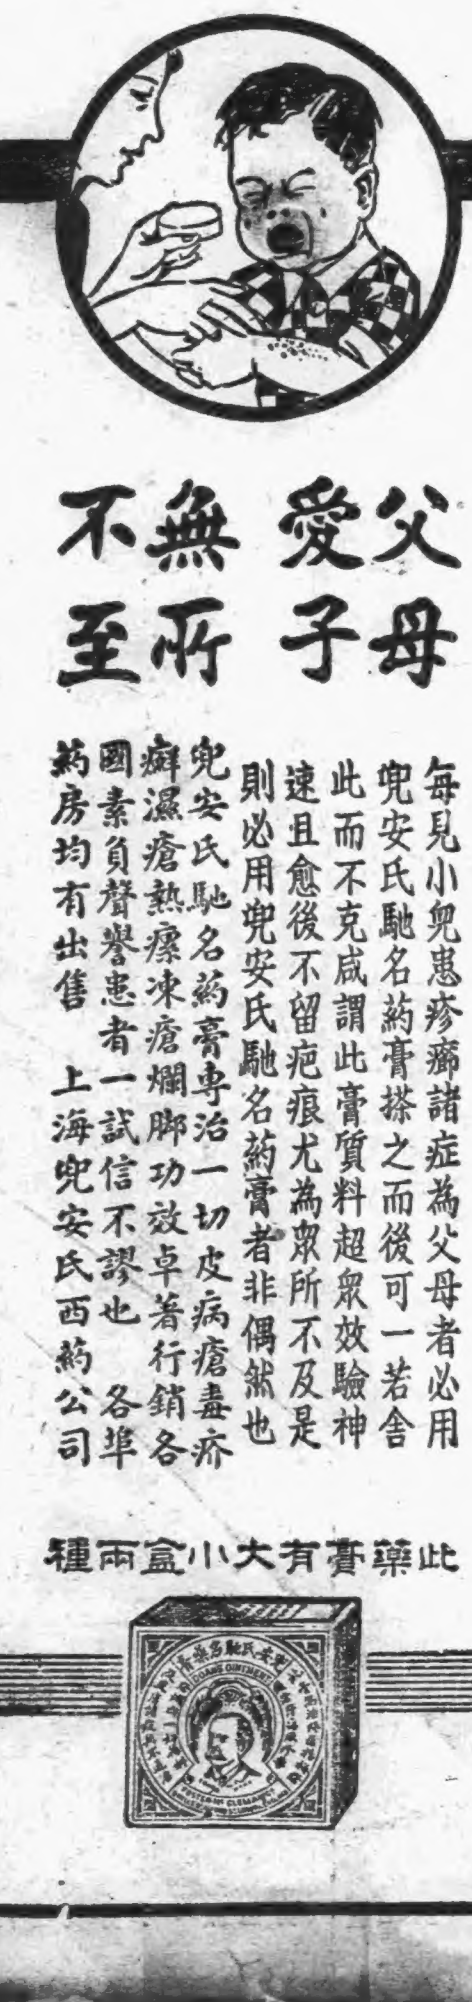 父母
愛子
無所
不至
每見小兒患疹癤諸症為父母者必用
兜安氏馳名葯膏搽之而後可一若舍
此而不克咸謂此膏質料超眾效驗神
速且愈後不留疤痕尤為眾所不及是
則必用兜安氏馳名葯膏者非偶然也
兜安氏馳名葯膏專治一切皮病瘡毒疥
癬濕瘡熱瘰凍瘡爛脚功效卓著行銷各
國素負聲譽患者一試信不謬也 各埠
葯房均有出售 上海兜安氏西葯公司
此藥膏有大小盒兩種
兜安氏馳名藥膏
DOANS OINTMENT
FOSTER-McCLELLAN